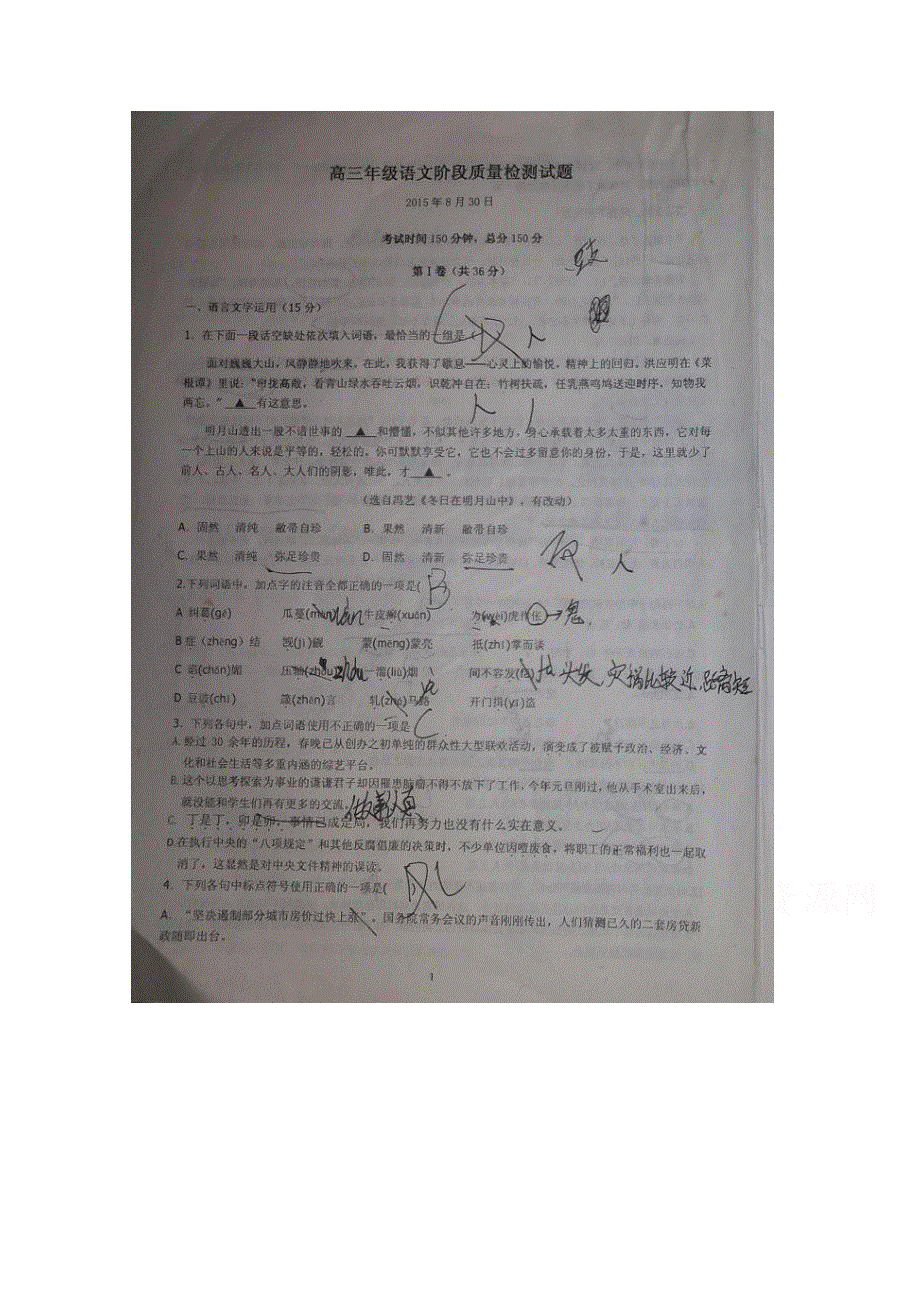 高三年级语文阶段质量检测试题
2015年8月30日
考试时间150分钟，总分150分
第Ⅰ卷（共36分）
一、语言文字运用（15分）
1．在下面一段话空缺处依次填入词语，最恰当的一组是（
面对巍巍大山，风静静地吹来，在此，我获得了歇息——心灵上的愉悦，精神上的回归。洪应明在《菜
根谭》里说：“帘拢高敞，看青山绿水吞吐云烟，识乾冲自在；竹树扶疏，任乳燕鸣鸠送迎时序，知物我
两忘。” ▲ 有这意思。
明月山透出一股不谙世事的 ▲ 和懵懂，不似其他许多地方，身心承载着太多太重的东西，它对每
一个上山的人来说是平等的，轻松的。你可默默享受它，它也不会过多留意你的身份，于是，这里就少了
前人、古人、名人、大人们的阴影，唯此，才 ▲ 。
（选自冯艺《冬日在明月山中》，有改动）
A．固然 清纯 敝帚自珍 B．果然 清新 敝帚自珍
C．果然 清纯 弥足珍贵 D．固然 清新 弥足珍贵
2.下列词语中，加点字的注音全都正确的一项是( B
A 纠葛(gé) 瓜蔓(màn) 牛皮癣(xuǎn) 为(wèi)虎作伥→鬼
B症（zhēng）结 觊(jì)觎 蒙(mēng)蒙亮 抵(zhǐ)掌而谈
C 谄(chǎn)媚 压轴(zhòu) 一溜(liù)烟 间不容发(fà)
D 豆豉(chǐ) 箴(zhēn)言 轧(zhá)马路 开门揖(yī)盗
3．下列各句中，加点词语使用不正确的一项是 C
A. 经过 30 余年的历程，春晚已从创办之初单纯的群众性大型联欢活动，演变成了被赋予政治、经济、文
化和社会生活等多重内涵的综艺平台。
B. 这个以思考探索为事业的谦谦君子却因罹患脑瘤不得不放下了工作，今年元旦刚过，他从手术室出来后，
就没能和学生们再有更多的交流。
C. 丁是丁，卯是卯，事情已成定局，我们再努力也没有什么实在意义。
D.在执行中央的“八项规定”和其他反腐倡廉的决策时，不少单位因噎废食，将职工的正常福利也一起取
消了，这显然是对中央文件精神的误读。
4．下列各句中标点符号使用正确的一项是(
A．“坚决遏制部分城市房价过快上涨”，国务院常务会议的声音刚刚传出，人们猜测已久的二套房贷新
政随即出台。
1
源网